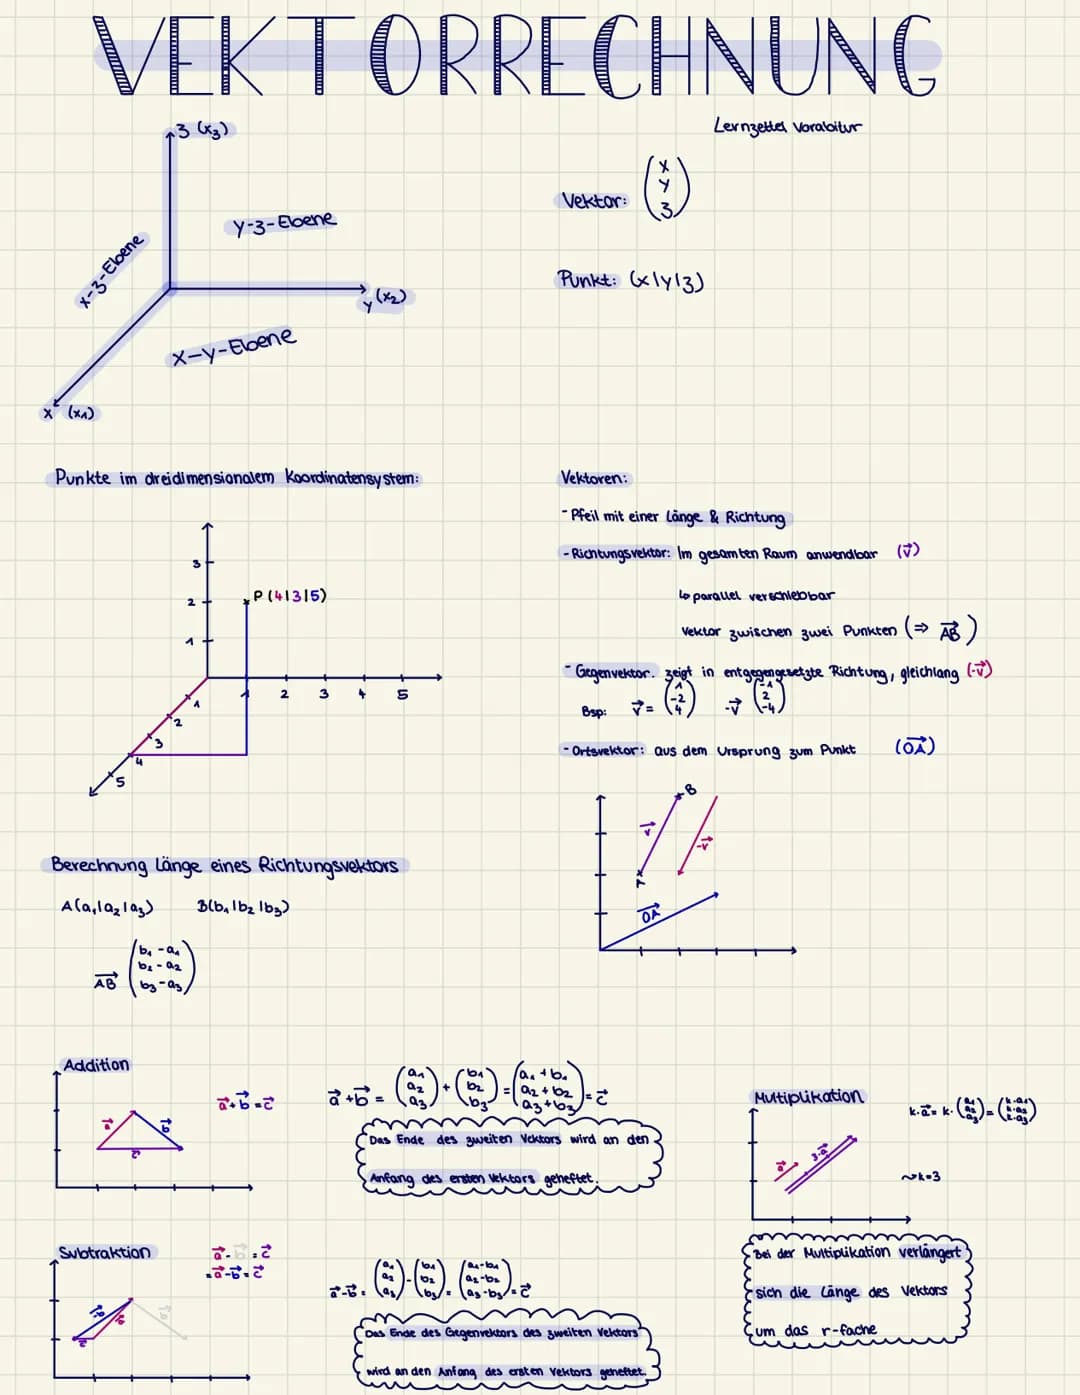 VEKTORRECHNUNG
Lernzettel Vorabitur
3 (x₃)
y-3-Ebene
x-3-Ebene
y (x₂)
x-y-Ebene
x (x₁)
Vektor: (x y 3)
Punkt: (x|y|3)
Punkte im dreidimensionalem Koordinatensystem:
3
2
1
P (4|3|5)
1 2 3 4 5
1
2
3
4
5
Vektoren:
- Pfeil mit einer Länge & Richtung
- Richtungsvektor: Im gesamten Raum anwendbar (v⃗)
↳ parallel verschiebbar
Vektor zwischen zwei Punkten (⇒ AB⃗)
- Gegenvektor: zeigt in entgegengesetzte Richtung, gleichlang (-v⃗)
Bsp: v⃗ = (1 -2 4) -v⃗ (-1 2 -4)
- Ortsvektor: aus dem Ursprung zum Punkt (OA⃗)
B
v⃗
-v⃗
OA⃗
Berechnung Länge eines Richtungsvektors
A(a₁|a₂|a₃) B(b₁|b₂|b₃)
AB⃗ (b₁-a₁ b₂-a₂ b₃-a₃)
Addition
a⃗+b⃗=c⃗
a⃗
b⃗
c⃗
a⃗+b⃗ = (a₁ a₂ a₃) + (b₁ b₂ b₃) = (a₁+b₁ a₂+b₂ a₃+b₃) = c⃗
Das Ende des zweiten Vektors wird an den
Anfang des ersten Vektors geheftet.
Multiplikation
k·a⃗ = k·(a₁ a₂ a₃) = (k·a₁ k·a₂ k·a₃)
a⃗
3·a⃗
~k=3
Bei der Multiplikation verlängert
sich die Länge des Vektors
um das r-fache
Subtraktion
a⃗-b⃗=c⃗
=a⃗-b⃗=c⃗
-b⃗
b⃗
c⃗
a⃗-b⃗ = (a₁ a₂ a₃) - (b₁ b₂ b₃) = (a₁-b₁ a₂-b₂ a₃-b₃) = c⃗
Das Ende des Gegenvektors des zweiten Vektors
wird an den Anfang des ersten Vektors geheftet.